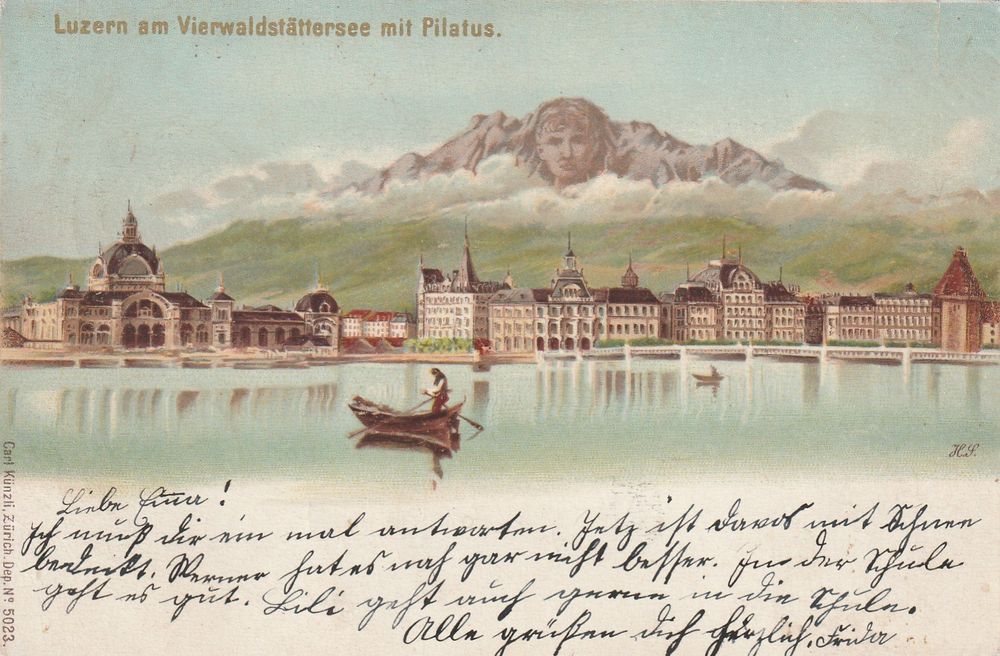 Luzern am Vierwaldstättersee mit Pilatus.
H.S.
Carl Künzli, Zürich. Dep. Nº 5023.
Liebe Emma!
Ich muß dir ein mal antworten. Jetz ist davos mit Schnee
bedeckt. Werner hat es nah gar nicht besser. In der Schule
geht es gut. Lili geht auch gerne in die Schule.
Alle grüßen dich herzlich. Frida